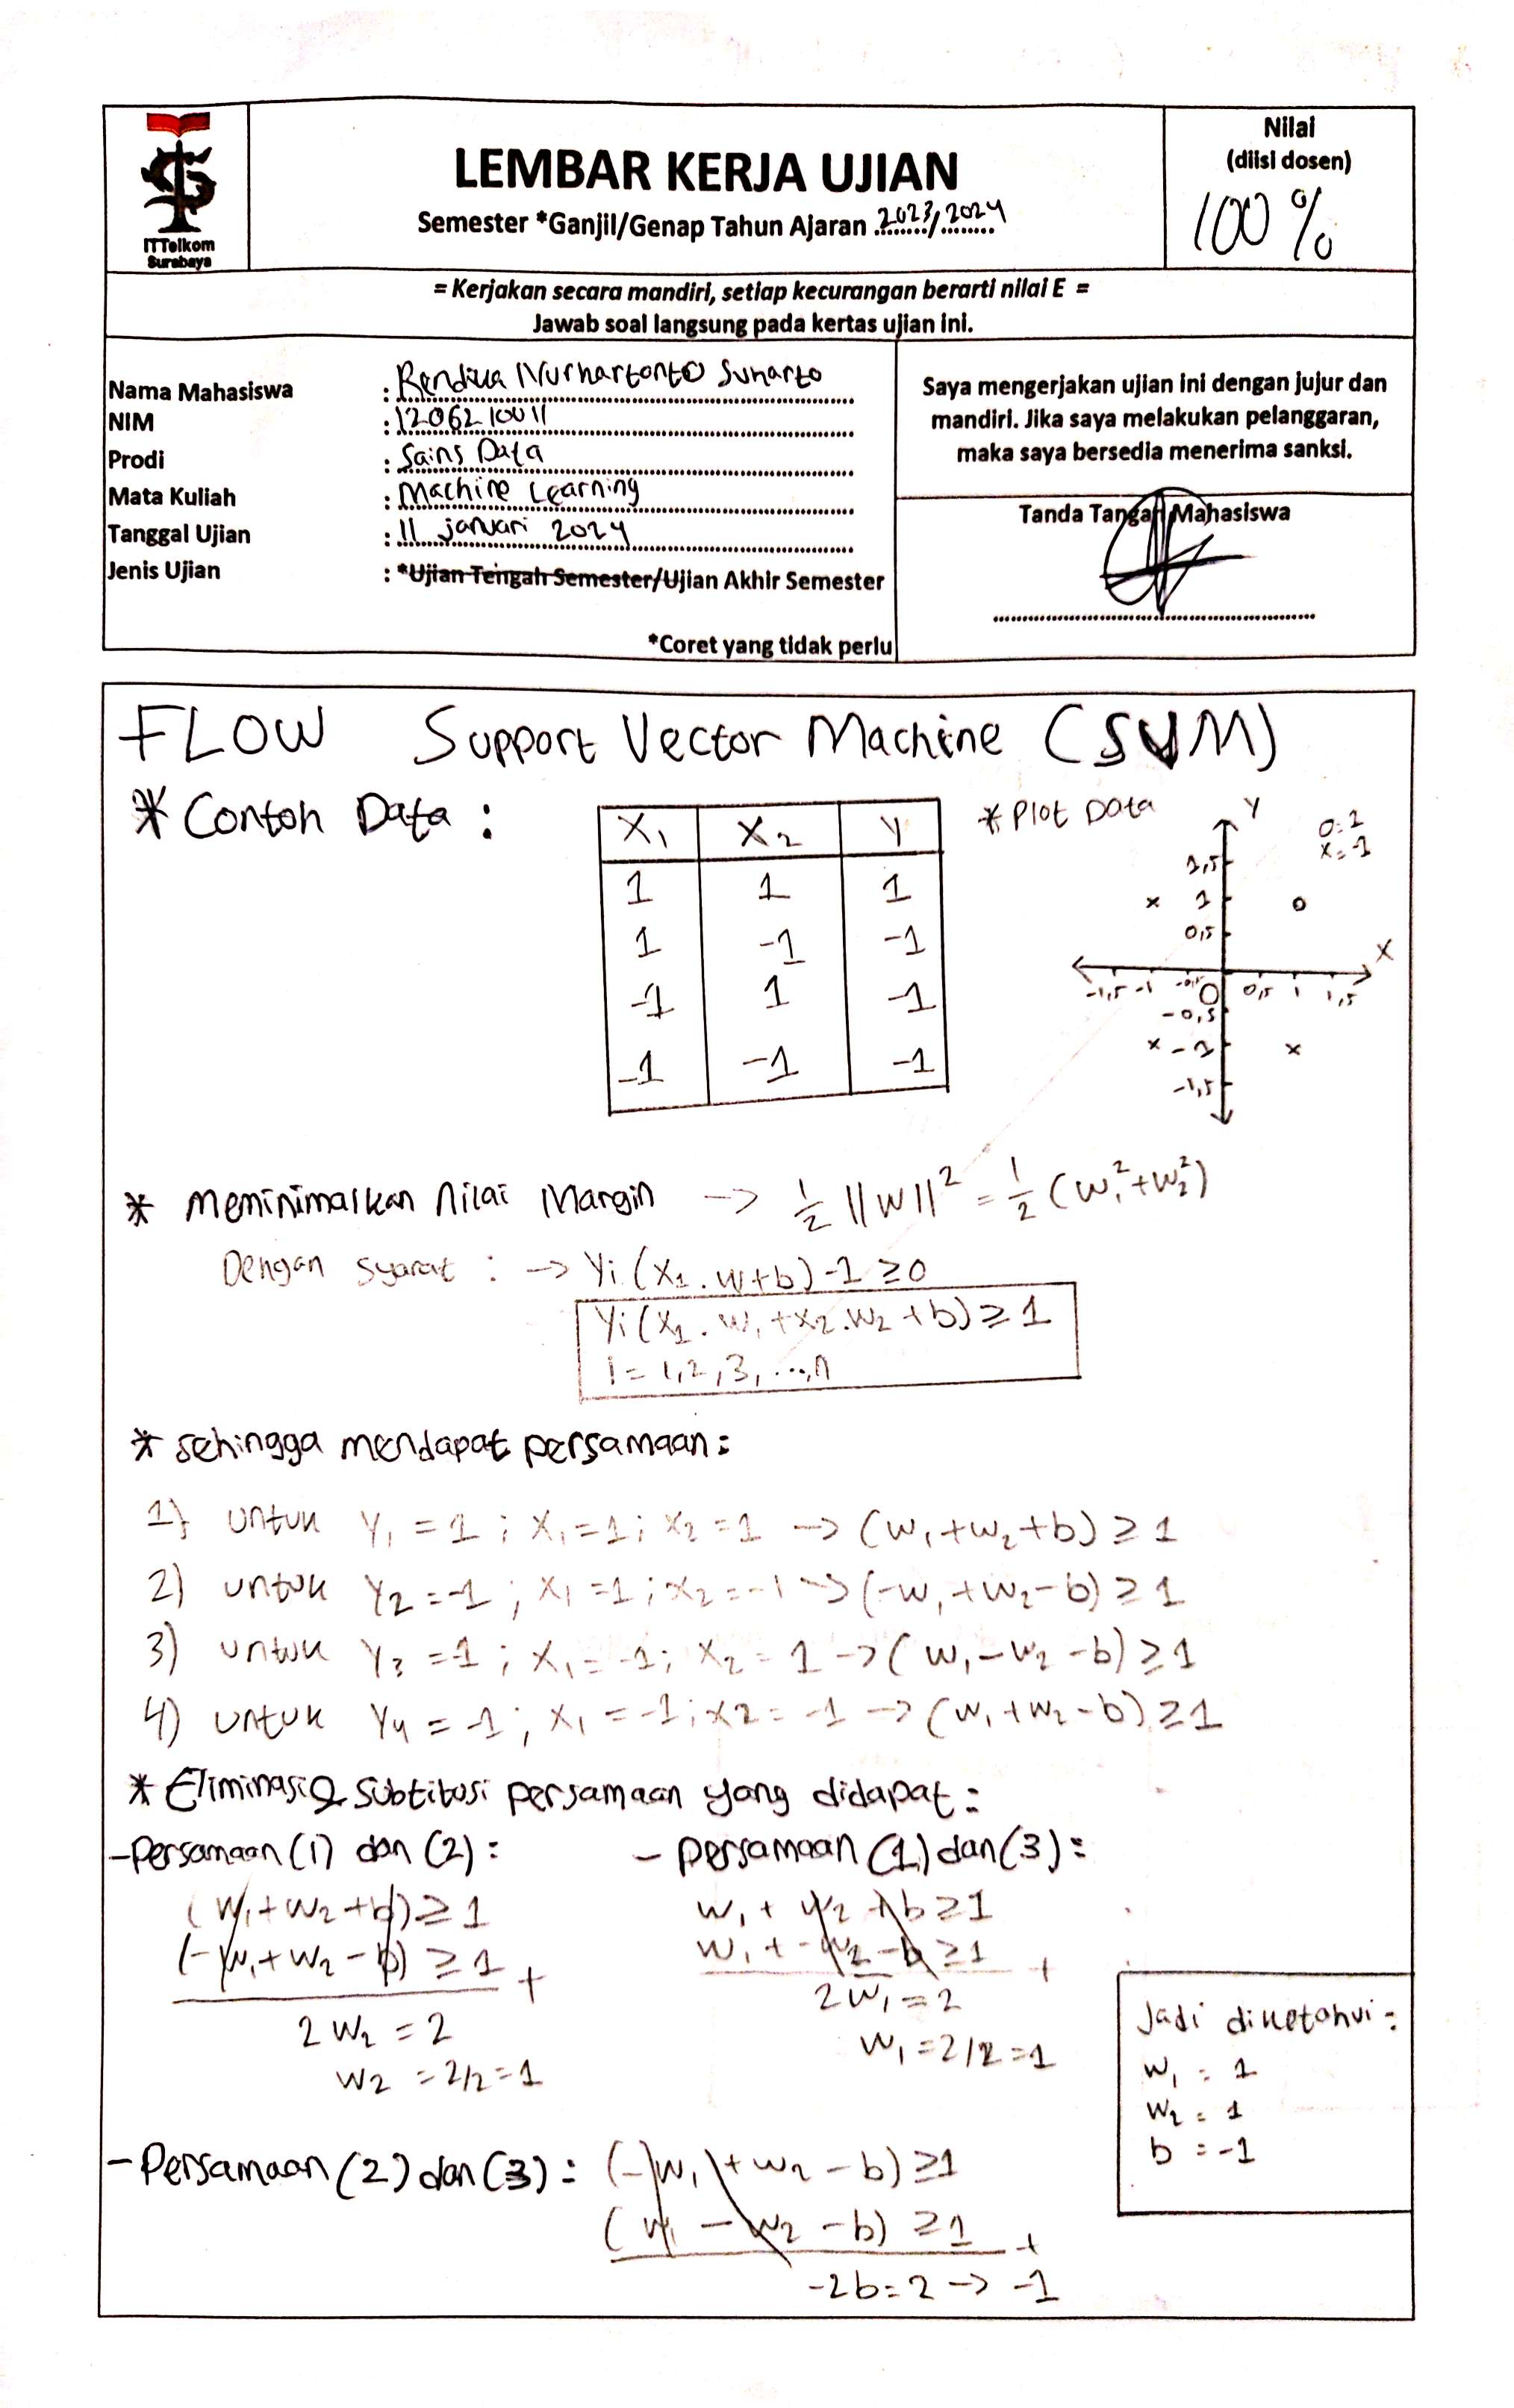 ITTelkom
Surabaya
LEMBAR KERJA UJIAN
Semester *Ganjil/Genap Tahun Ajaran 2023/2024
Nilai
(diisi dosen)
100 %
= Kerjakan secara mandiri, setiap kecurangan berarti nilai E =
Jawab soal langsung pada kertas ujian ini.
Nama Mahasiswa : Rendika Nurhartanto Suharto
NIM : 1206210011
Prodi : Sains Data
Mata Kuliah : Machine Learning
Tanggal Ujian : 11 januari 2024
Jenis Ujian : *Ujian Tengah Semester/Ujian Akhir Semester
*Coret yang tidak perlu
Saya mengerjakan ujian ini dengan jujur dan
mandiri. Jika saya melakukan pelanggaran,
maka saya bersedia menerima sanksi.
Tanda Tangan Mahasiswa
FLOW Support Vector Machine (SVM)
* Contoh Data :
X₁ X₂ Y
1 1 1
1 -1 -1
-1 1 -1
-1 -1 -1
* Plot Data
Y
o: 1
x = -1
1,5
x 1 o
0,5
X
-1,5 -1 -0,5 O 0,5 1 1,5
-0,5
x -1 x
-1,5
* Meminimalkan Nilai Margin -> ½ ||w||² = ½ (w₁² + w₂²)
Dengan syarat : -> Yi (X₁ . w + b) - 1 ≥ 0
Yi (X₁ . w₁ + X₂ . w₂ + b) ≥ 1
i = 1,2,3,...,n
* sehingga mendapat persamaan :
1) untuk Y₁ = 1 ; X₁ = 1 ; X₂ = 1 -> (w₁ + w₂ + b) ≥ 1
2) untuk Y₂ = -1 ; X₁ = 1 ; X₂ = -1 -> (-w₁ + w₂ - b) ≥ 1
3) untuk Y₃ = -1 ; X₁ = -1 ; X₂ = 1 -> (w₁ - w₂ - b) ≥ 1
4) untuk Y₄ = -1 ; X₁ = -1 ; X2 = -1 -> (w₁ + w₂ - b) ≥ 1
* Eliminasi & Subtitusi persamaan yang didapat :
- Persamaan (1) dan (2) :
(w₁ + w₂ + b) ≥ 1
(-w₁ + w₂ - b) ≥ 1 +
2 w₂ = 2
w₂ = 2/2 = 1
- persamaan (1) dan (3) :
w₁ + w₂ + b ≥ 1
w₁ + - w₂ - b ≥ 1 +
2 w₁ = 2
w₁ = 2/2 = 1
- Persamaan (2) dan (3) : (-w₁ + w₂ - b) ≥ 1
(w₁ - w₂ - b) ≥ 1 +
-2b = 2 -> -1
Jadi diketahui :
w₁ = 1
w₂ = 1
b = -1